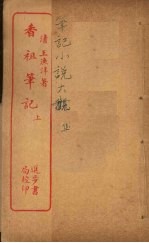 筆記小說大觀
清王漁洋著
香祖筆記
上
進步書
局校印